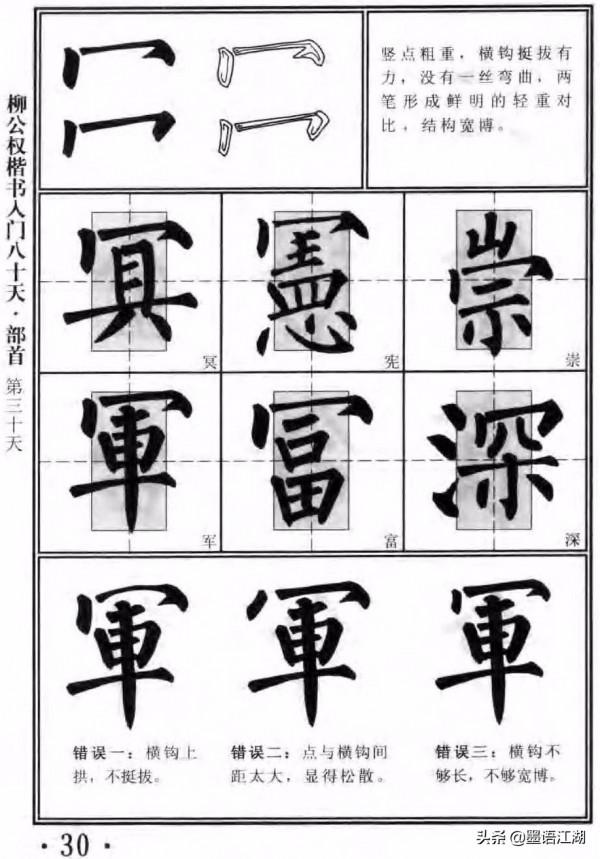 柳公权楷书入门八十天·部首 第三十天
冖 冖
冖 冖
竖点粗重，横钩挺拔有
力，没有一丝弯曲，两
笔形成鲜明的轻重对
比，结构宽博。
冥 憲 崇
冥 宪 崇
軍 富 深
军 富 深
軍 軍 軍
错误一：横钩上
拱，不挺拔。
错误二：点与横钩间
距太大，显得松散。
错误三：横钩不
够长，不够宽博。
·30·
头条 @墨语江湖